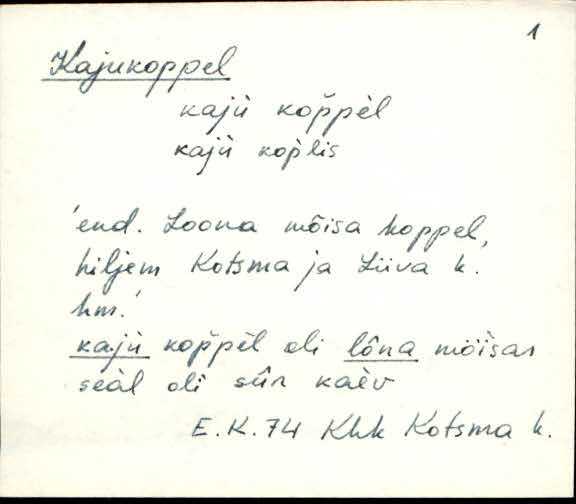 1
Kajukoppel
kajù kop̆pèl
kajù kop̆lis
'end. Loona mõisa koppel,
hiljem Kotsma ja Liiva k.
hm.'
kajù kop̆pèl oli lôna möisas
seàl oli sûr kaèv
E.K.74 Khk Kotsma k.